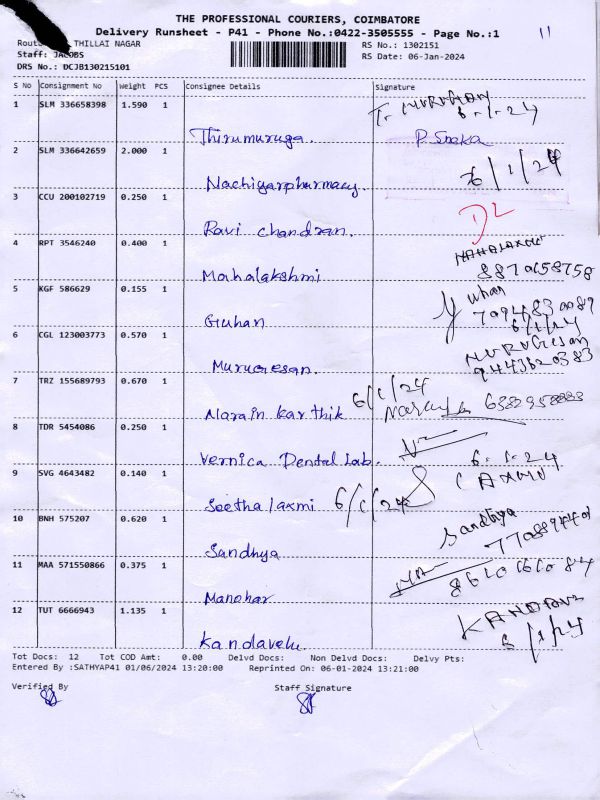 THE PROFESSIONAL COURIERS, COIMBATORE
Delivery Runsheet - P41 - Phone No.:0422-3505555 - Page No.:1
11
THILLAI NAGAR
RS No.: 1302151
Staff: JACOBS
RS Date: 06-Jan-2024
DRS No.: DCJB130215101
S No Consignment No Weight PCS Consignee Details Signature
1 SLM 336658398 1.590 1
T. MURUGAN
6-1-24
Thirumuruga.
2 SLM 336642659 2.000 1
6/1/24
Nachiyarpharmacy.
3 CCU 200102719 0.250 1
DL
Ravi chandran.
4 RPT 3546240 0.400 1
8870658758
Mahalakshmi
5 KGF 586629 0.155 1
6/1/24
Guhan
6 CGL 123003773 0.570 1
MURUGesan
9443620383
Murugesan.
7 TRZ 155689793 0.670 1
6/1/24
Narain karthik
8 TDR 5454086 0.250 1
6-1-24
Vernica Dental Lab.
9 SVG 4643482 0.140 1
Seethalaxmi 6/1/24
10 BNH 575207 0.620 1
Sandhya
Sandhya
11 MAA 571550866 0.375 1
Manohar
12 TUT 6666943 1.135 1
Kandavelu
Tot Docs: 12 Tot COD Amt: 0.00 Delvd Docs: Non Delvd Docs: Delvy Pts:
Entered By :SATHYAP41 01/06/2024 13:20:00 Reprinted On: 06-01-2024 13:21:00
Verified By
Staff Signature